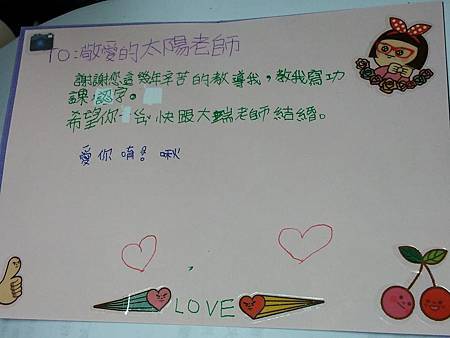 TO:敬愛的太陽老師
謝謝您這幾年辛苦的教導我,教我寫功
課,認字。
希望你 台快跟大端老師結婚。
愛你唷!啾
LOVE